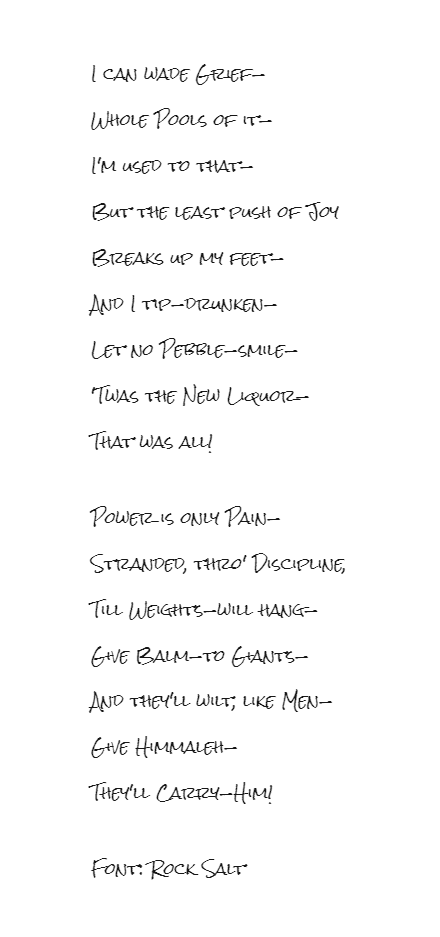 I can wade Grief—
Whole Pools of it—
I'm used to that—
But the least push of Joy
Breaks up my feet—
And I tip—drunken—
Let no Pebble—smile—
'Twas the New Liquor—
That was all!
Power is only Pain—
Stranded, thro' Discipline,
Till Weights—will hang—
Give Balm—to Giants—
And they'll wilt, like Men—
Give Himmaleh—
They'll Carry—Him!
Font: Rock Salt